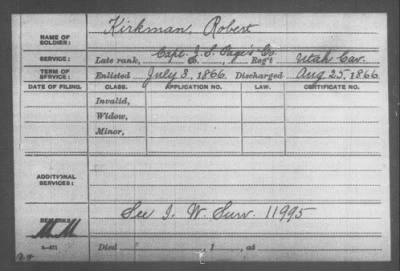 NAME OF SOLDIER: Kirkman, Robert
SERVICE: Late rank, Capt. J. S. Page's Co. Reg't Utah Cav.
TERM OF SERVICE: Enlisted July 3, 1866 Discharged Aug 25, 1866
DATE OF FILING. CLASS. APPLICATION NO. LAW. CERTIFICATE NO.
Invalid,
Widow,
Minor,
ADDITIONAL SERVICES:
See I. W. Surv. 11995
REMARKS:
Died , 1 , at